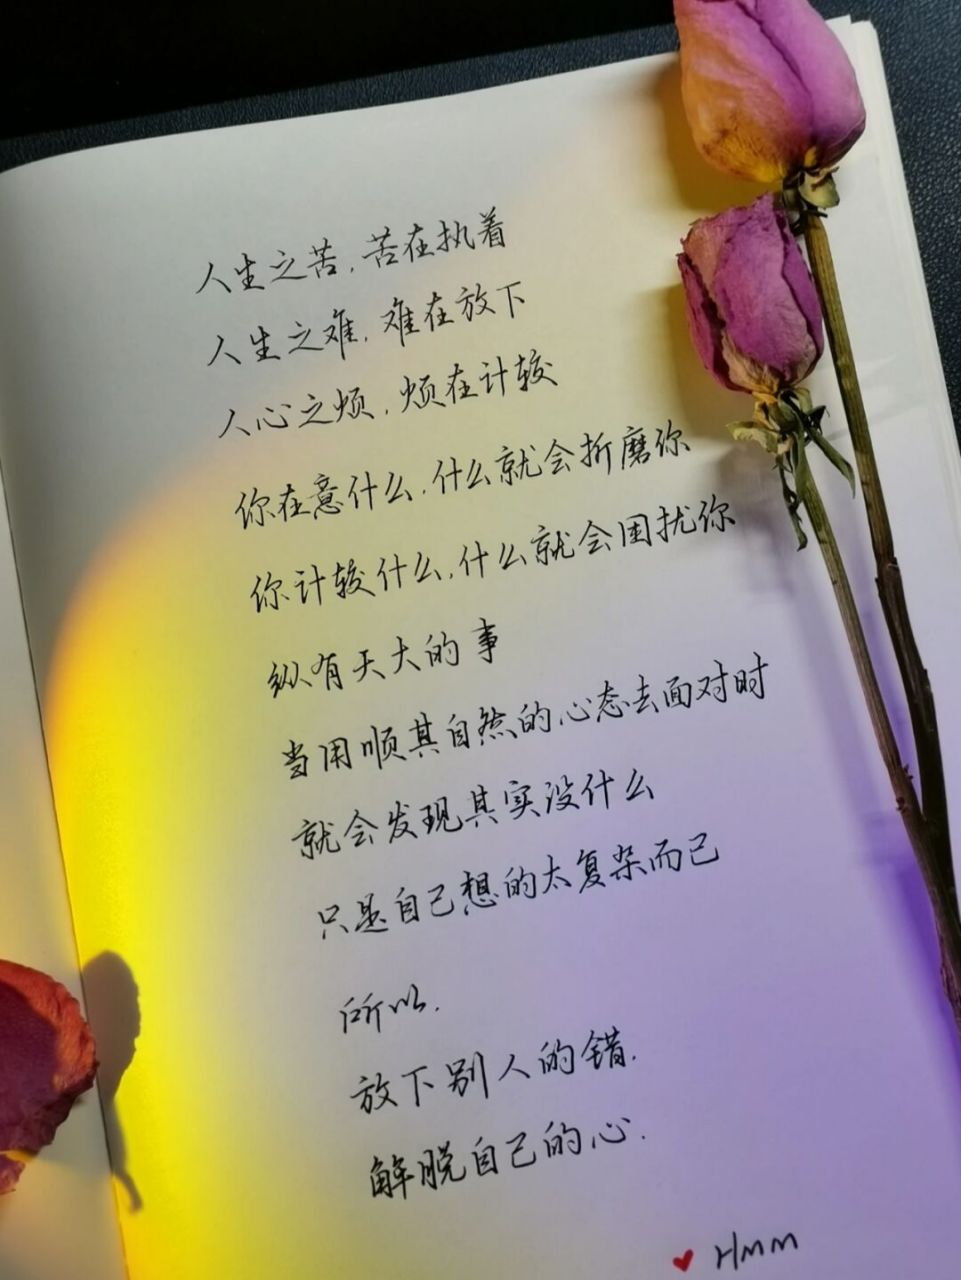 人生之苦,苦在执着
人生之难,难在放下
人心之烦,烦在计较
你在意什么,什么就会折磨你
你计较什么,什么就会困扰你
纵有天大的事
当用顺其自然的心态去面对时
就会发现其实没什么
只是自己想的太复杂而已
所以.
放下别人的错.
解脱自己的心.
♥ Hmm